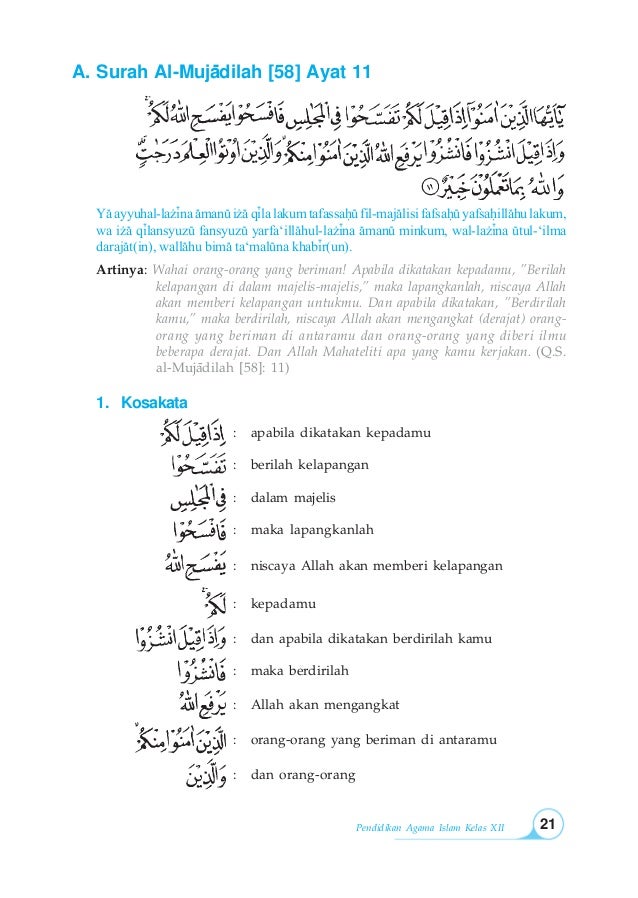 A. Surah Al-Mujādilah [58] Ayat 11
يٰٓاَيُّهَا الَّذِيْنَ اٰمَنُوْٓا اِذَا قِيْلَ لَكُمْ تَفَسَّحُوْا فِى الْمَجٰلِسِ فَافْسَحُوْا يَفْسَحِ اللّٰهُ لَكُمْۚ
وَاِذَا قِيْلَ انْشُزُوْا فَانْشُزُوْا يَرْفَعِ اللّٰهُ الَّذِيْنَ اٰمَنُوْا مِنْكُمْۙ وَالَّذِيْنَ اُوْتُوا الْعِلْمَ دَرَجٰتٍۗ
وَاللّٰهُ بِمَا تَعْمَلُوْنَ خَبِيْرٌ ١١
Yā ayyuhal-lażīna āmanū iżā qīla lakum tafassaḥū fil-majālisi fafsaḥū yafsaḥillāhu lakum,
wa iżā qīlansyuzū fansyuzū yarfa‘illāhul-lażīna āmanū minkum, wal-lażīna ūtul-‘ilma
darajāt(in), wallāhu bimā ta‘malūna khabīr(un).
Artinya: Wahai orang-orang yang beriman! Apabila dikatakan kepadamu, ”Berilah
kelapangan di dalam majelis-majelis,” maka lapangkanlah, niscaya Allah
akan memberi kelapangan untukmu. Dan apabila dikatakan, ”Berdirilah
kamu,” maka berdirilah, niscaya Allah akan mengangkat (derajat) orang-
orang yang beriman di antaramu dan orang-orang yang diberi ilmu
beberapa derajat. Dan Allah Mahateliti apa yang kamu kerjakan. (Q.S.
al-Mujādilah [58]: 11)
1. Kosakata
اِذَا قِيْلَ لَكُمْ : apabila dikatakan kepadamu
تَفَسَّحُوْا : berilah kelapangan
فِى الْمَجٰلِسِ : dalam majelis
فَافْسَحُوْا : maka lapangkanlah
يَفْسَحِ اللّٰهُ : niscaya Allah akan memberi kelapangan
لَكُمْۚ : kepadamu
وَاِذَا قِيْلَ انْشُزُوْا : dan apabila dikatakan berdirilah kamu
فَانْشُزُوْا : maka berdirilah
يَرْفَعِ اللّٰهُ : Allah akan mengangkat
الَّذِيْنَ اٰمَنُوْا مِنْكُمْۙ : orang-orang yang beriman di antaramu
وَالَّذِيْنَ : dan orang-orang
Pendidikan Agama Islam Kelas XII 21